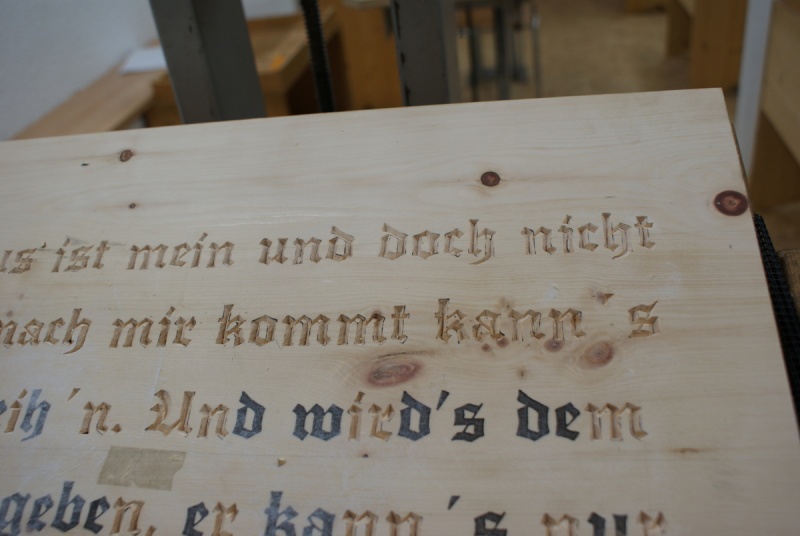 us ist mein und doch nicht
nach mir kommt kann´s
eih´n. Und wird´s dem
geben, er kann´s nur